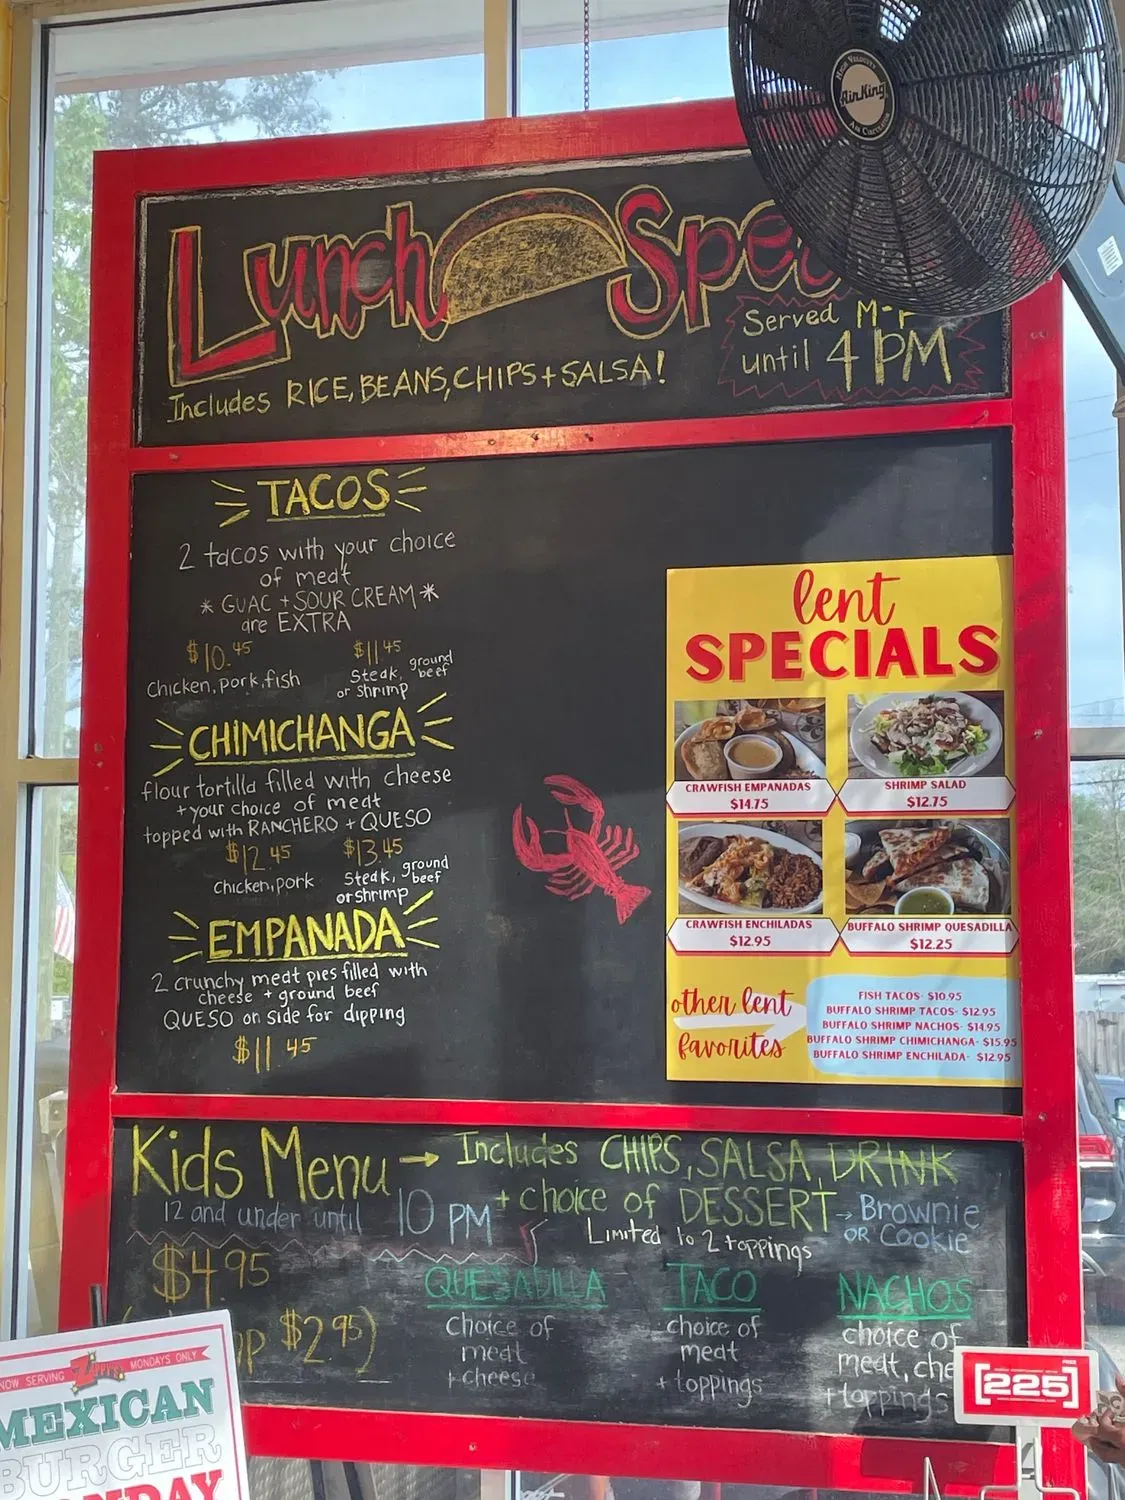 HIGH VELOCITY
AirKing
Lunch
Served
until 4 PM
Includes RICE, BEANS, CHIPS + SALSA!
TACOS
2 tacos with your choice
of meat
* GUAC + SOUR CREAM *
are EXTRA
$10.45
Chicken, pork, fish
$11.45
Steak, ground beef
or shrimp
CHIMICHANGA
flour tortilla filled with cheese
+ your choice of meat
topped with RANCHERO + QUESO
$12.45
Chicken, pork
$13.45
Steak, ground beef
or shrimp
EMPANADA
2 crunchy meat pies filled with
cheese + ground beef
QUESO on side for dipping
$11.45
lent
SPECIALS
CRAWFISH EMPANADAS
$14.75
SHRIMP SALAD
$12.75
CRAWFISH ENCHILADAS
$12.95
BUFFALO SHRIMP QUESADILLA
$12.25
other lent
favorites
FISH TACOS- $10.95
BUFFALO SHRIMP TACOS- $12.95
BUFFALO SHRIMP NACHOS- $14.95
BUFFALO SHRIMP CHIMICHANGA- $15.95
BUFFALO SHRIMP ENCHILADA- $12.95
Kids Menu → Includes CHIPS, SALSA, DRINK
+ choice of DESSERT → Brownie
OR Cookie
12 and under until 10 PM
Limited to 2 toppings
$4.95
$2.95)
QUESADILLA
choice of
meat
+ cheese
TACO
choice of
meat
+ toppings
NACHOS
choice of
meat,
+ toppings
NOW SERVING Zippy's MONDAYS ONLY
MEXICAN
BURGER
[225]